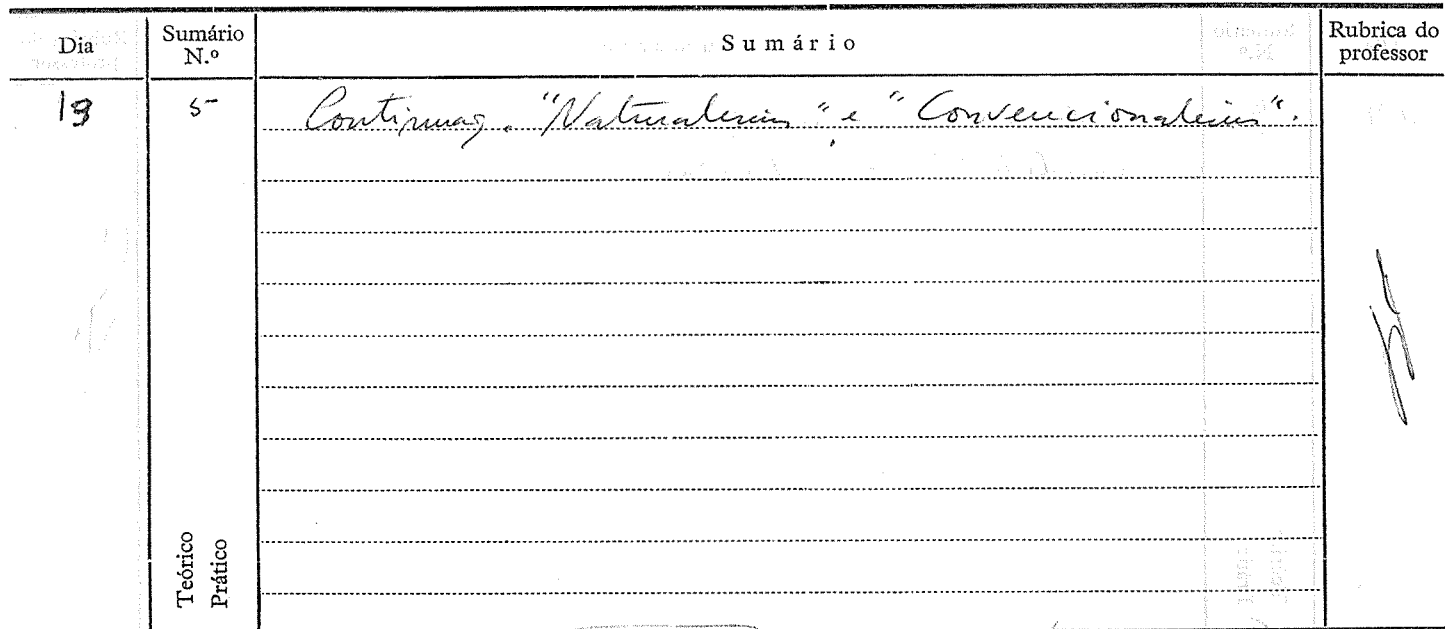 Dia
Sumário N.º
Sumário
Rubrica do professor
19
5
Continuaç. "Naturalismo" e "Convencionalismo".
Teórico
Prático